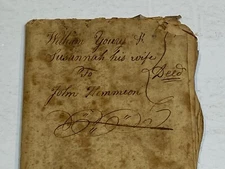 William Young &
Susannah his wife
To
Deed
John